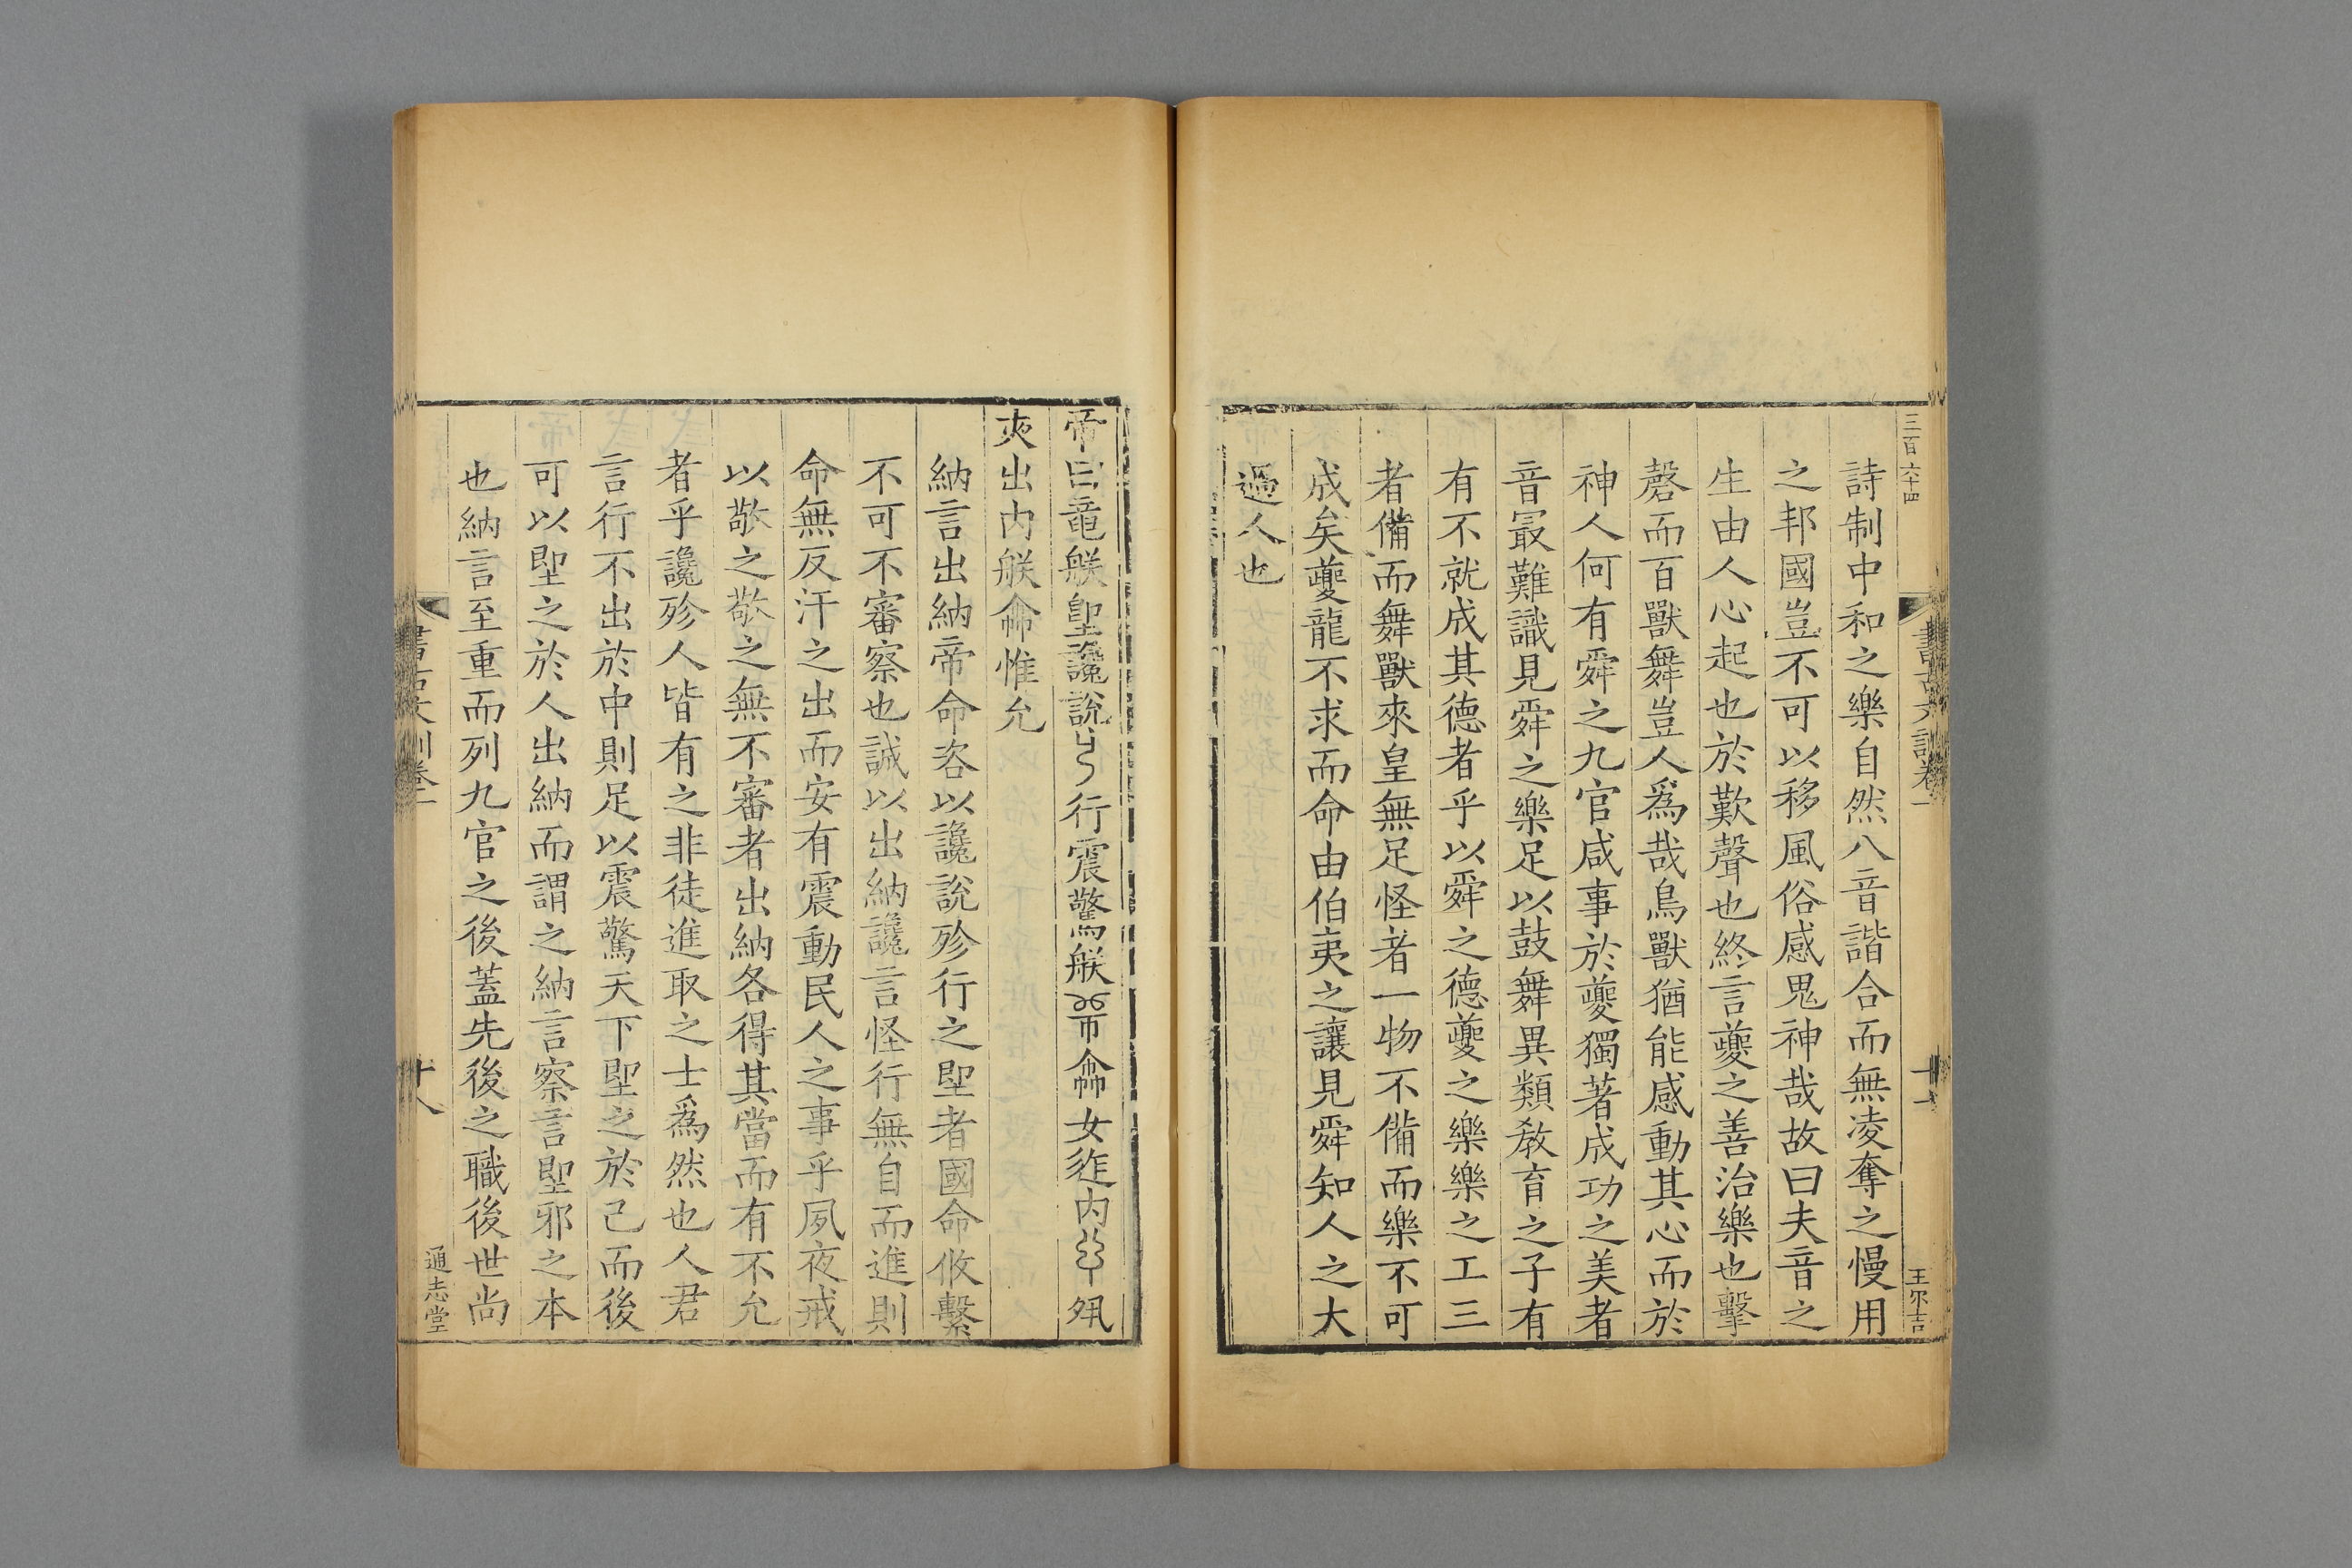 三百六十四
書古文訓卷一
十七
王尔吉
詩制中和之樂自然八音諧合而無凌奪之慢用
之邦國豈不可以移風俗感鬼神哉故曰夫音之
生由人心起也於歎聲也終言夔之善治樂也擊
磬而百獸舞豈人爲哉鳥獸猶能感動其心而於
神人何有舜之九官咸事於夔獨著成功之美者
音最難識見舜之樂足以鼓舞異類教育之子有
有不就成其德者乎以舜之德夔之樂樂之工三
者備而舞獸來皇無足怪者一物不備而樂不可
成矣夔龍不求而命由伯夷之讓見舜知人之大
過人也
帝曰竜般堲讒說行震驚般帀侖女迮内
夾出内般侖惟允
納言出納帝命命咨以讒說殄行之堲者國命攸繫
不可不審察也誠以出納讒言怪行無自而進則
命無反汗之出而安有震動民人之事乎夙夜戒
以敬之敬之無不審者出納各得其當而有不允
者乎讒殄人皆有之非徒進取之士爲然也人君
言行不出於中則足以震驚天下堲之於己而後
可以堲之於人出納而謂之納言察言堲邪之本
也納言至重而列九官之後蓋先後之職後世尚
書古文訓卷一
十八
通志堂